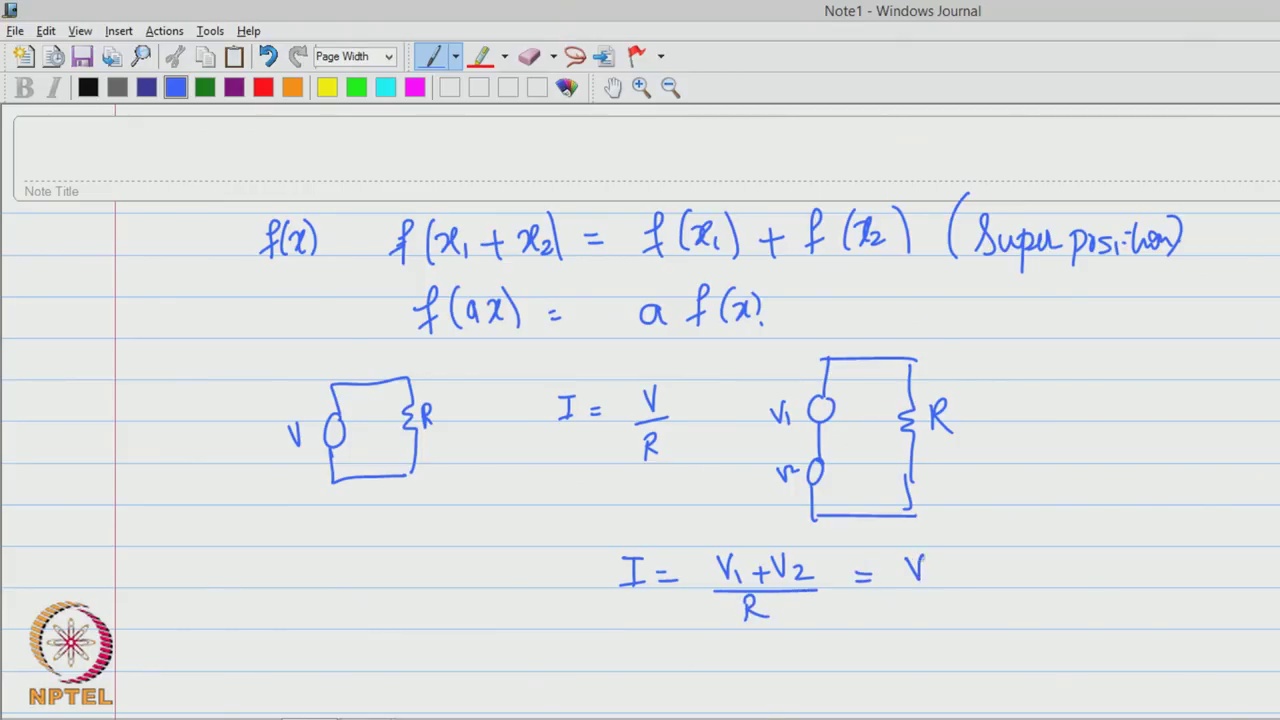 Note1 - Windows Journal
File Edit View Insert Actions Tools Help
Page Width
B I
Note Title
f(x) f(x1 + x2) = f(x1) + f(x2) (Superposition)
f(ax) = a f(x)
V R I = V/R V1 R
V2
I = V1+V2/R = V
NPTEL